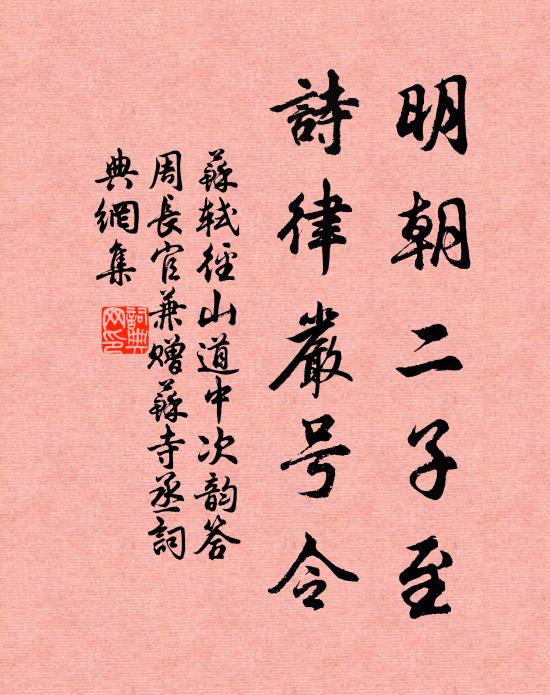 明朝二子至
詩律嚴号令
蘇軾徑山道中次韵答
周長官兼贈蘇寺丞詞
典網集
詞典
网印